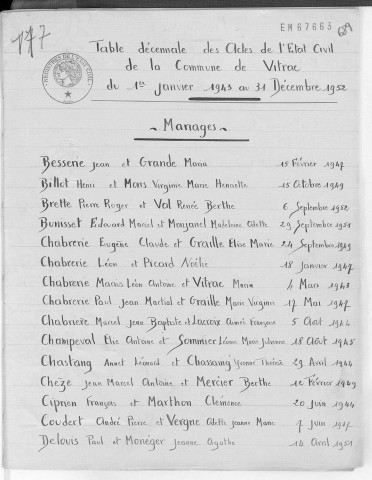 177
EM67663
Table décennale des Actes de l'Etat Civil
de la Commune de Vitrac
du 1er Janvier 1943 au 31 Décembre 1952
- Mariages -
Besserie Jean et Grande Maria 15 Février 1947
Billot Henri et Mons Virginie Marie Henriette 15 Octobre 1949
Brette Pierre Roger et Val Renée Berthe 6 Septembre 1952
Bunisset Edouard Marcel et Moujanel Madeleine Odette 29 Septembre 1951
Chabrerie Eugène Claude et Graille Elise Marie 24 Septembre 1949
Chabrerie Léon et Picard Noélie 18 Janvier 1947
Chabrerie Marius Léon Antoine et Vitrac Maria 4 Mars 1943
Chabrerie Paul Jean Martial et Graille Marie Virginie 17 Mai 1947
Chabrière Marcel Jean Baptiste et Lacroix Françoise 5 Août 1944
Champeval Elie Antoine et Sommier Léonie Marie Julienne 18 Août 1945
Chastang Annet Léonard et Chassaing Yvonne Thérèse 29 Avril 1944
Chèze Jean Marcel Antoine et Mercier Berthe 12 Février 1949
Ciprien François et Marthon Clémence 20 Juin 1944
Coudert André Pierre et Vergne Odette Jeanne Marie 7 Juin 1947
Delouis Paul et Monéger Jeanne Agathe 14 Avril 1951